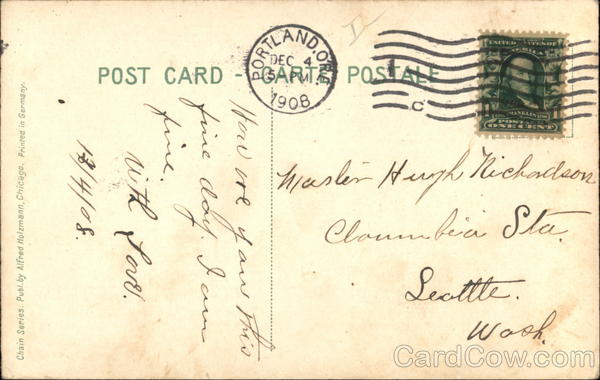 POST CARD - CARTE POSTALE
PORTLAND, ORE.
DEC 4
5 PM
1908
UNITED STATES OF AMERICA
FRANKLIN
POSTAGE
ONE CENT
How are you this
fine day. I am
fine.
With Love.
12/4/08.
Master Hugh Richardson
Cloumbia Sta.
Seattle.
Wash.
Chain Series. Publ. by Alfred Holzmann, Chicago. Printed in Germany.
CardCow.com